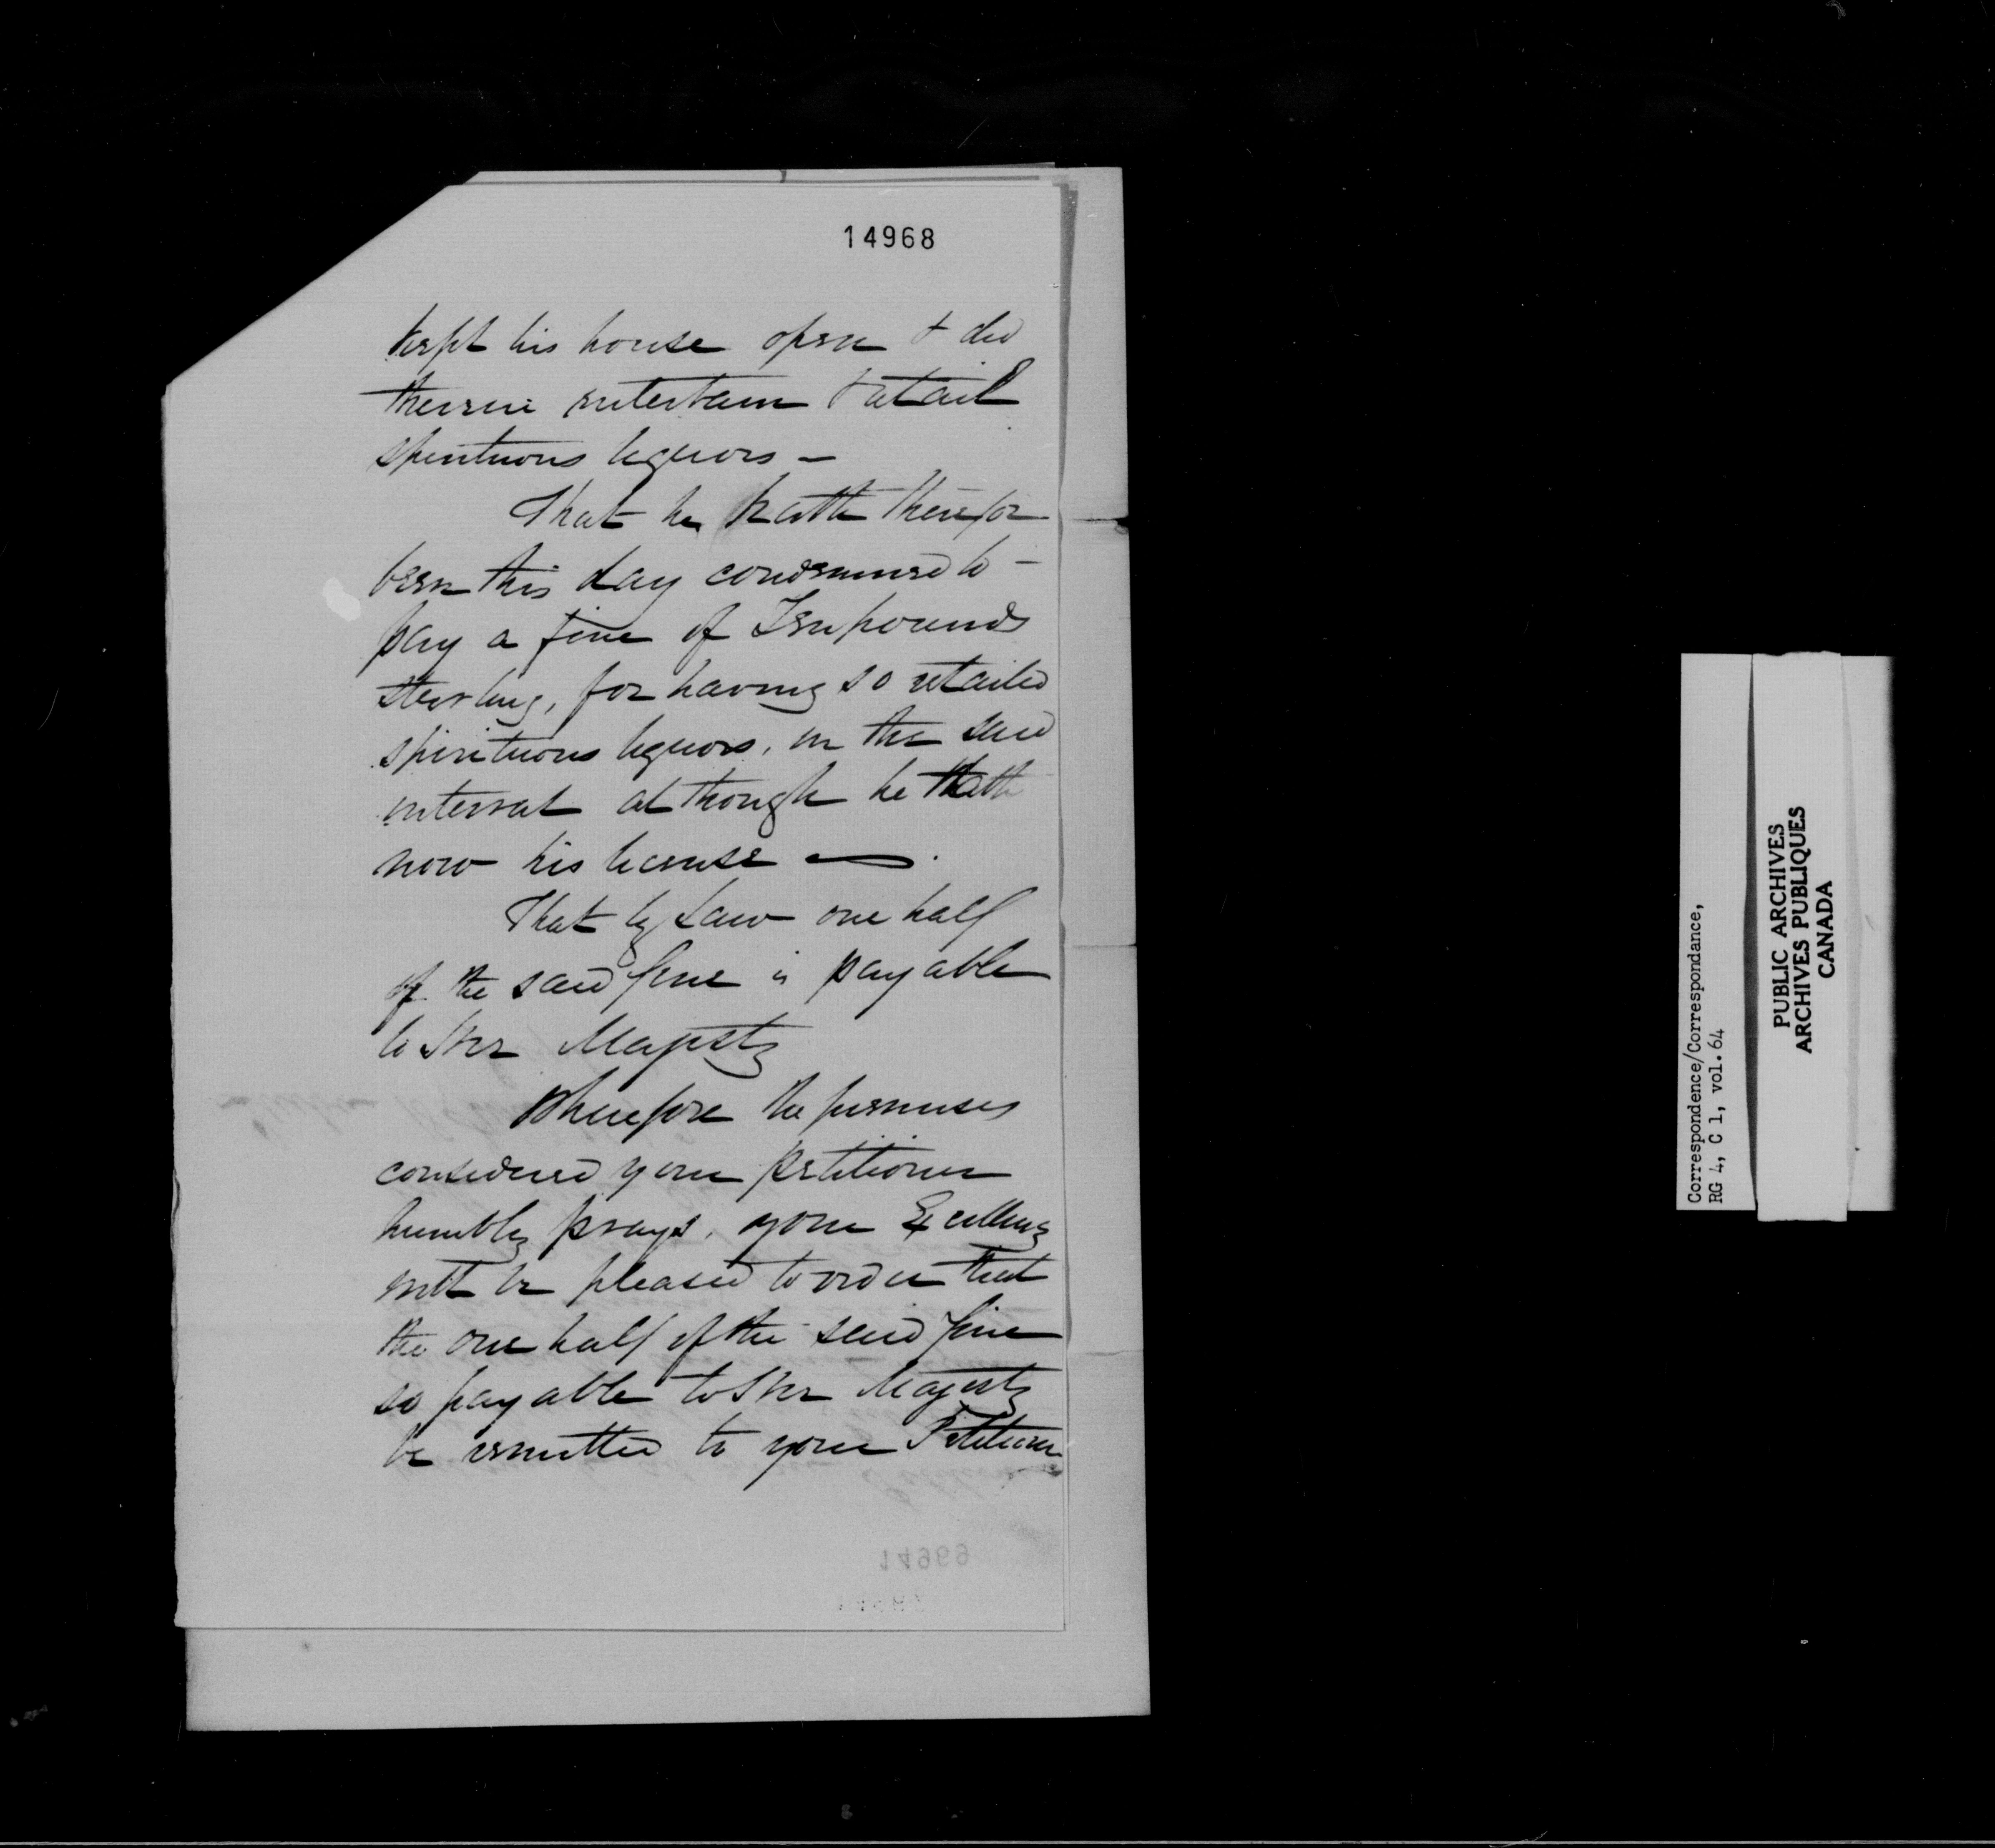 14968
kept his house open & did
therein entertain & retail
spirituous liquors –
That he hath therefor
been this day condemned to –
pay a fine of Ten pounds
sterling, for having so retailed
spirituous liquors, in the said
interval although he hath
now his license —.
That by Law one half
of the said fine is payable
to Her Majesty
Wherefore the premises
considered your petitioner
humbly prays, your Excellency
will be pleased to order that
the one half of the said fine
so payable to Her Majesty
be remitted to your Petitioner
14969
Correspondence/Correspondance,
RG 4, C 1, vol. 64
PUBLIC ARCHIVES
ARCHIVES PUBLIQUES
CANADA